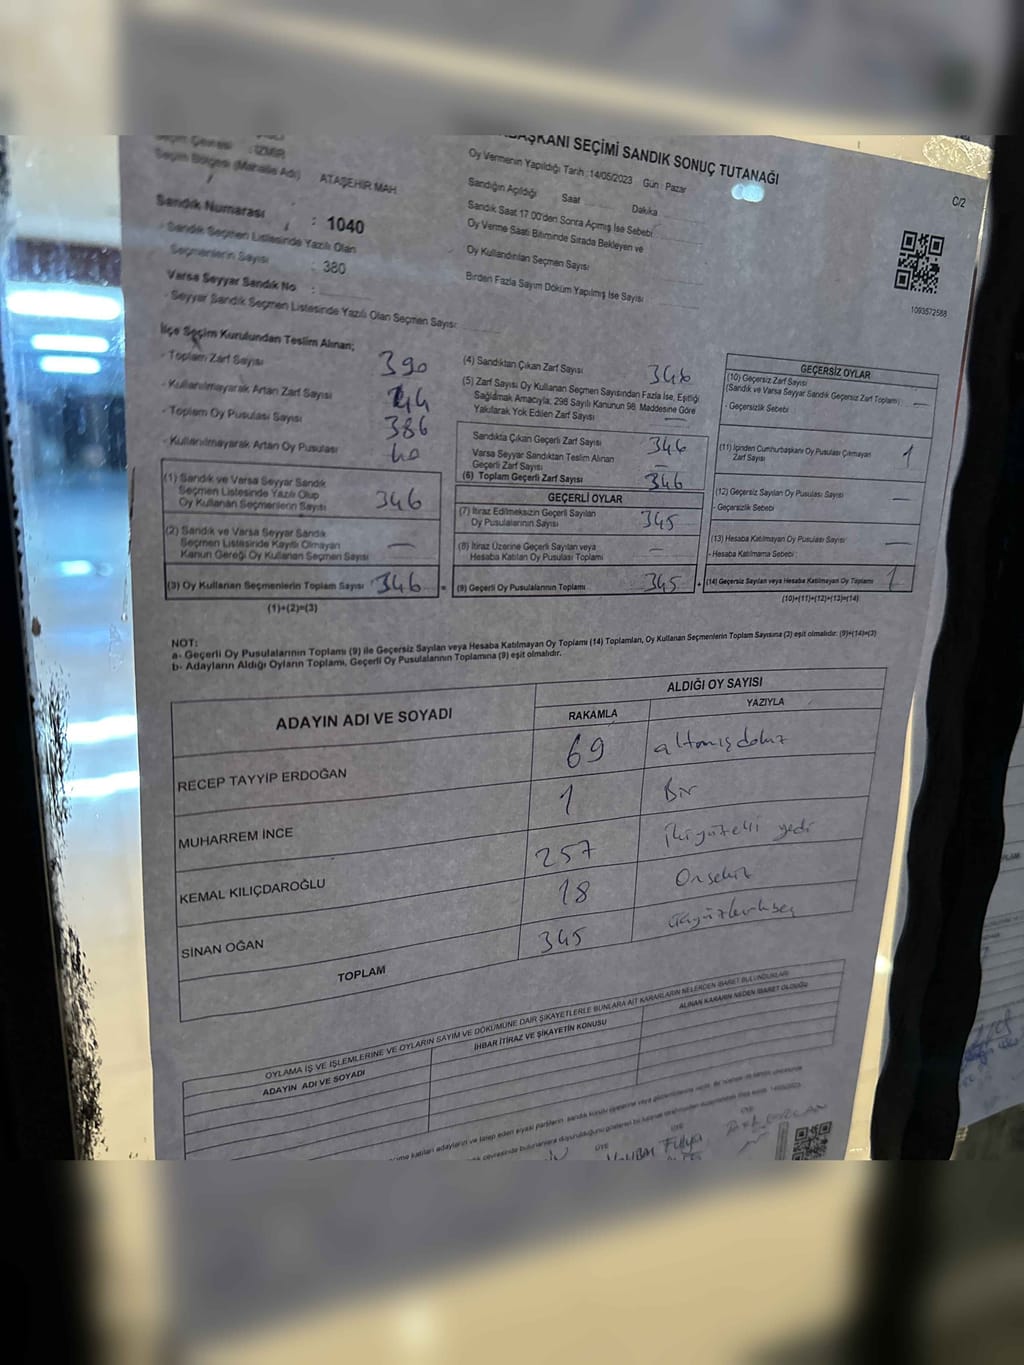 BAŞKANI SEÇİMİ SANDIK SONUÇ TUTANAĞI
Seçim Çevresi : İZMİR
Seçim Bölgesi (Mahalle Adı) ATAŞEHİR MAH
Sandık Numarası : 1040
- Sandık Seçmen Listesinde Yazılı Olan
Seçmenlerin Sayısı : 380
Varsa Seyyar Sandık No :
- Seyyar Sandık Seçmen Listesinde Yazılı Olan Seçmen Sayısı:
Oy Vermenin Yapıldığı Tarih :14/05/2023 Gün : Pazar
Sandığın Açıldığı Saat Dakika
Sandık Saat 17:00'den Sonra Açımış İse Sebebi
Oy Verme Saati Bitiminde Sırada Bekleyen ve
Oy Kullandırılan Seçmen Sayısı
Birden Fazla Sayım Döküm Yapılmış İse Sayısı
C/2
1093572588
İlçe Seçim Kurulundan Teslim Alınan;
- Toplam Zarf Sayısı 390
- Kullanılmayarak Artan Zarf Sayısı 44
- Toplam Oy Pusulası Sayısı 386
- Kullanılmayarak Artan Oy Pusulası 40
(1) Sandık ve Varsa Seyyar Sandık
Seçmen Listesinde Yazılı Olup
Oy Kullanan Seçmenlerin Sayısı 346
(2) Sandık ve Varsa Seyyar Sandık
Seçmen Listesinde Kayıtlı Olmayan
Kanun Gereği Oy Kullanan Seçmen Sayısı —
(3) Oy Kullanan Seçmenlerin Toplam Sayısı 346 =
(1)+(2)=(3)
(4) Sandıktan Çıkan Zarf Sayısı 346
(5) Zarf Sayısı Oy Kullanan Seçmen Sayısından Fazla İse, Eşitliği
Sağlamak Amacıyla; 298 Sayılı Kanunun 98. Maddesine Göre
Yakılarak Yok Edilen Zarf Sayısı —
Sandıkta Çıkan Geçerli Zarf Sayısı 346
Varsa Seyyar Sandıktan Teslim Alınan
Geçerli Zarf Sayısı —
(6) Toplam Geçerli Zarf Sayısı 346
GEÇERLİ OYLAR
(7) İtiraz Edilmeksizin Geçerli Sayılan
Oy Pusulalarının Sayısı 345
(8) İtiraz Üzerine Geçerli Sayılan veya
Hesaba Katılan Oy Pusulası Toplamı —
(9) Geçerli Oy Pusulalarının Toplamı 345 +
GEÇERSİZ OYLAR
(10) Geçersiz Zarf Sayısı
(Sandık ve Varsa Seyyar Sandık Geçersiz Zarf Toplamı) —
- Geçersizlik Sebebi
(11) İçinden Cumhurbaşkanı Oy Pusulası Çıkmayan
Zarf Sayısı 1
(12) Geçersiz Sayılan Oy Pusulası Sayısı —
- Geçersizlik Sebebi
(13) Hesaba Katılmayan Oy Pusulası Sayısı —
- Hesaba Katılmama Sebebi
(14) Geçersiz Sayılan veya Hesaba Katılmayan Oy Toplamı 1
(10)+(11)+(12)+(13)=(14)
NOT:
a- Geçerli Oy Pusulalarının Toplamı (9) ile Geçersiz Sayılan veya Hesaba Katılmayan Oy Toplamı (14) Toplamları, Oy Kullanan Seçmenlerin Toplam Sayısına (3) eşit olmalıdır. (9)+(14)=(3)
b- Adayların Aldığı Oyların Toplamı, Geçerli Oy Pusulalarının Toplamına (9) eşit olmalıdır.
ADAYIN ADI VE SOYADI ALDIĞI OY SAYISI
RAKAMLA YAZIYLA
RECEP TAYYİP ERDOĞAN 69 altmışdokuz
MUHARREM İNCE 1 Bir
KEMAL KILIÇDAROĞLU 257 İkiyüzelli yedi
SİNAN OĞAN 18 Onsekiz
TOPLAM 345 üçyüzkırkbeş
OYLAMA İŞ VE İŞLEMLERİNE VE OYLARIN SAYIM VE DÖKÜMÜNE DAİR ŞİKAYETLERLE BUNLARA AİT KARARLARIN NELERDEN İBARET BULUNDUKLARI
ADAYIN ADI VE SOYADI İHBAR İTİRAZ VE ŞİKAYETİN KONUSU ALINAN KARARIN NEDEN İBARET OLDUĞU
ÜYE ÜYE ÜYE
Fulya